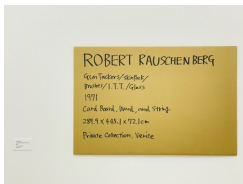 ROBERT RAUSCHENBERG
Gum Tuckers/SkinPack/
Brushes/I.T.T./Glass
1971
Card Board, Wood, and String.
289.9 x 448.1 x 72.1cm
Private Collection, Venice